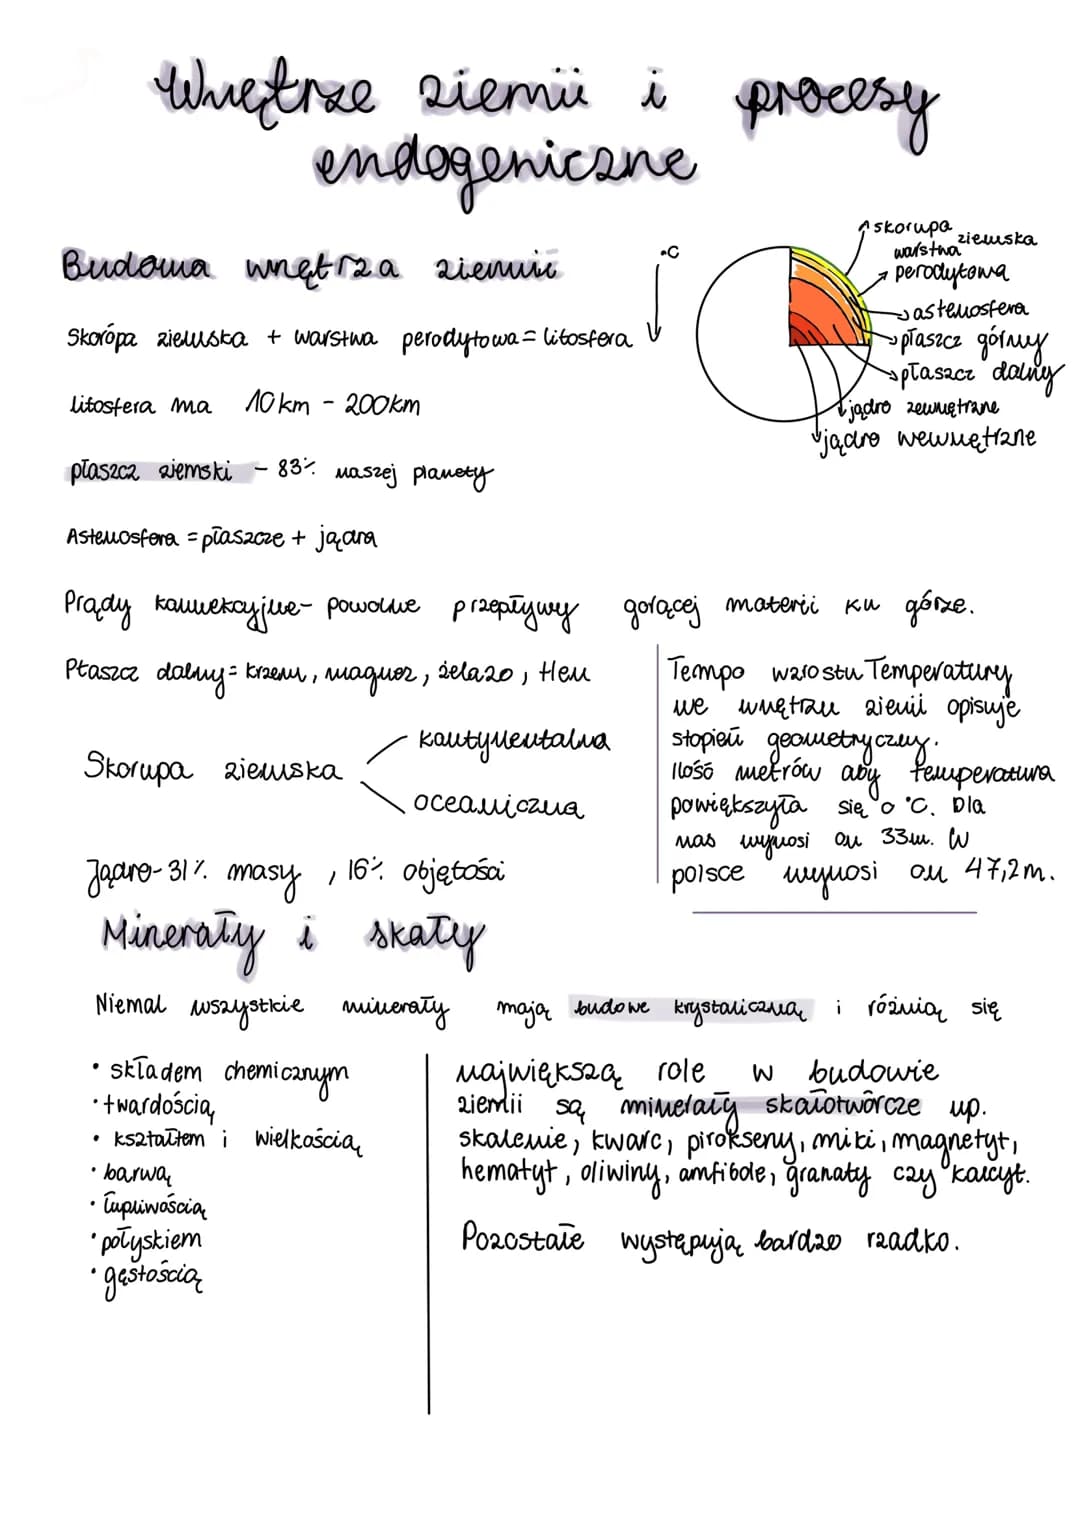 Wnętrze ziemii i procesy
endogeniczne
Budowa wnętrza ziemii
°C
skorupa ziemska
warstwa
perodytowa
astenosfera
płaszcz górny
płaszcz dolny
jądro zewnętrzne
jądro wewnętrzne
Skorópa ziemska + warstwa perodytowa = litosfera
litosfera ma 10km - 200km
płaszcz ziemski - 83% naszej planety
Astenosfera = płaszcze + jądra
Prądy konwekcyjne - powolne przepływy gorącej materii ku górze.
Płaszcz dolny = krzem, magnez, żelazo, Hem
Skorupa ziemska
kontynentalna
oceaniczna
Jądro - 31% masy, 16% objętości
Tempo wzrostu Temperatury
we wnętrzu ziemii opisuje
stopień geometryczny.
Ilość metrów aby temperatura
powiększyła się o °C. Dla
nas wynosi on 33m. W
polsce wynosi on 47,2m.
Minerały i skały
Niemal wszystkie minerały mają budowe krystaliczną i różnią się
• składem chemicznym
• twardością
• kształtem i wielkością
• barwą
• łupliwością
• połyskiem
• gęstością
największą role w budowie
ziemii są minerały skałotwórcze np.
skalenie, kwarc, pirokseny, miki, magnetyt,
hematyt, oliwiny, amfibole, granaty czy kalcyt.
Pozostałe występują bardzo rzadko.